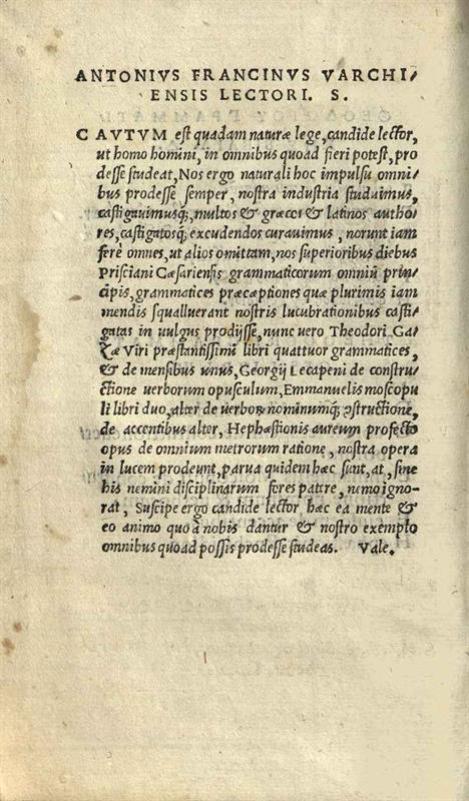 ANTONIVS FRANCINVS VARCHI/
ENSIS LECTORI. S.
CAVTVM est quadam naturæ lege, candide lector,
ut homo homini, in omnibus quoad fieri potest, pro
desse studeat, Nos ergo naturali hoc impulsu omni/
bus prodesse semper, nostra industria studuimus,
castigauimusq;, multos & græcos & latinos autho/
res, castigatosq; excudendos curauimus, norunt iam
ferè omnes, ut alios omittam, nos superioribus diebus
Prisciani Cæsariensis grammaticorum omniũ prin/
cipis, grammatices præceptiones quæ plurimis iam
mendis squalluerant nostris lucubrationibus casti/
gatas in uulgus prodijsse, nunc uero Theodori Ga/
zæ Viri præstantissimi libri quattuor grammatices,
& de mensibus unus, Georgij Lecapeni de constru/
ctione uerborum opusculum, Emmanuelis moscopu
li libri duo, alter de uerboꝝ nominumq; ꝯstructione,
de accentibus alter, Hephæstionis aureum profecto
opus de omnium metrorum ratione, nostra opera
in lucem prodeunt, parua quidem hæc sunt, at, sine
his nemini disciplinarum fores patere, nemo igno/
rat, Suscipe ergo candide lector, hæc ea mente &
eo animo quo à nobis dantur & nostro exemplo
omnibus quoad possis prodesse studeas. Vale.